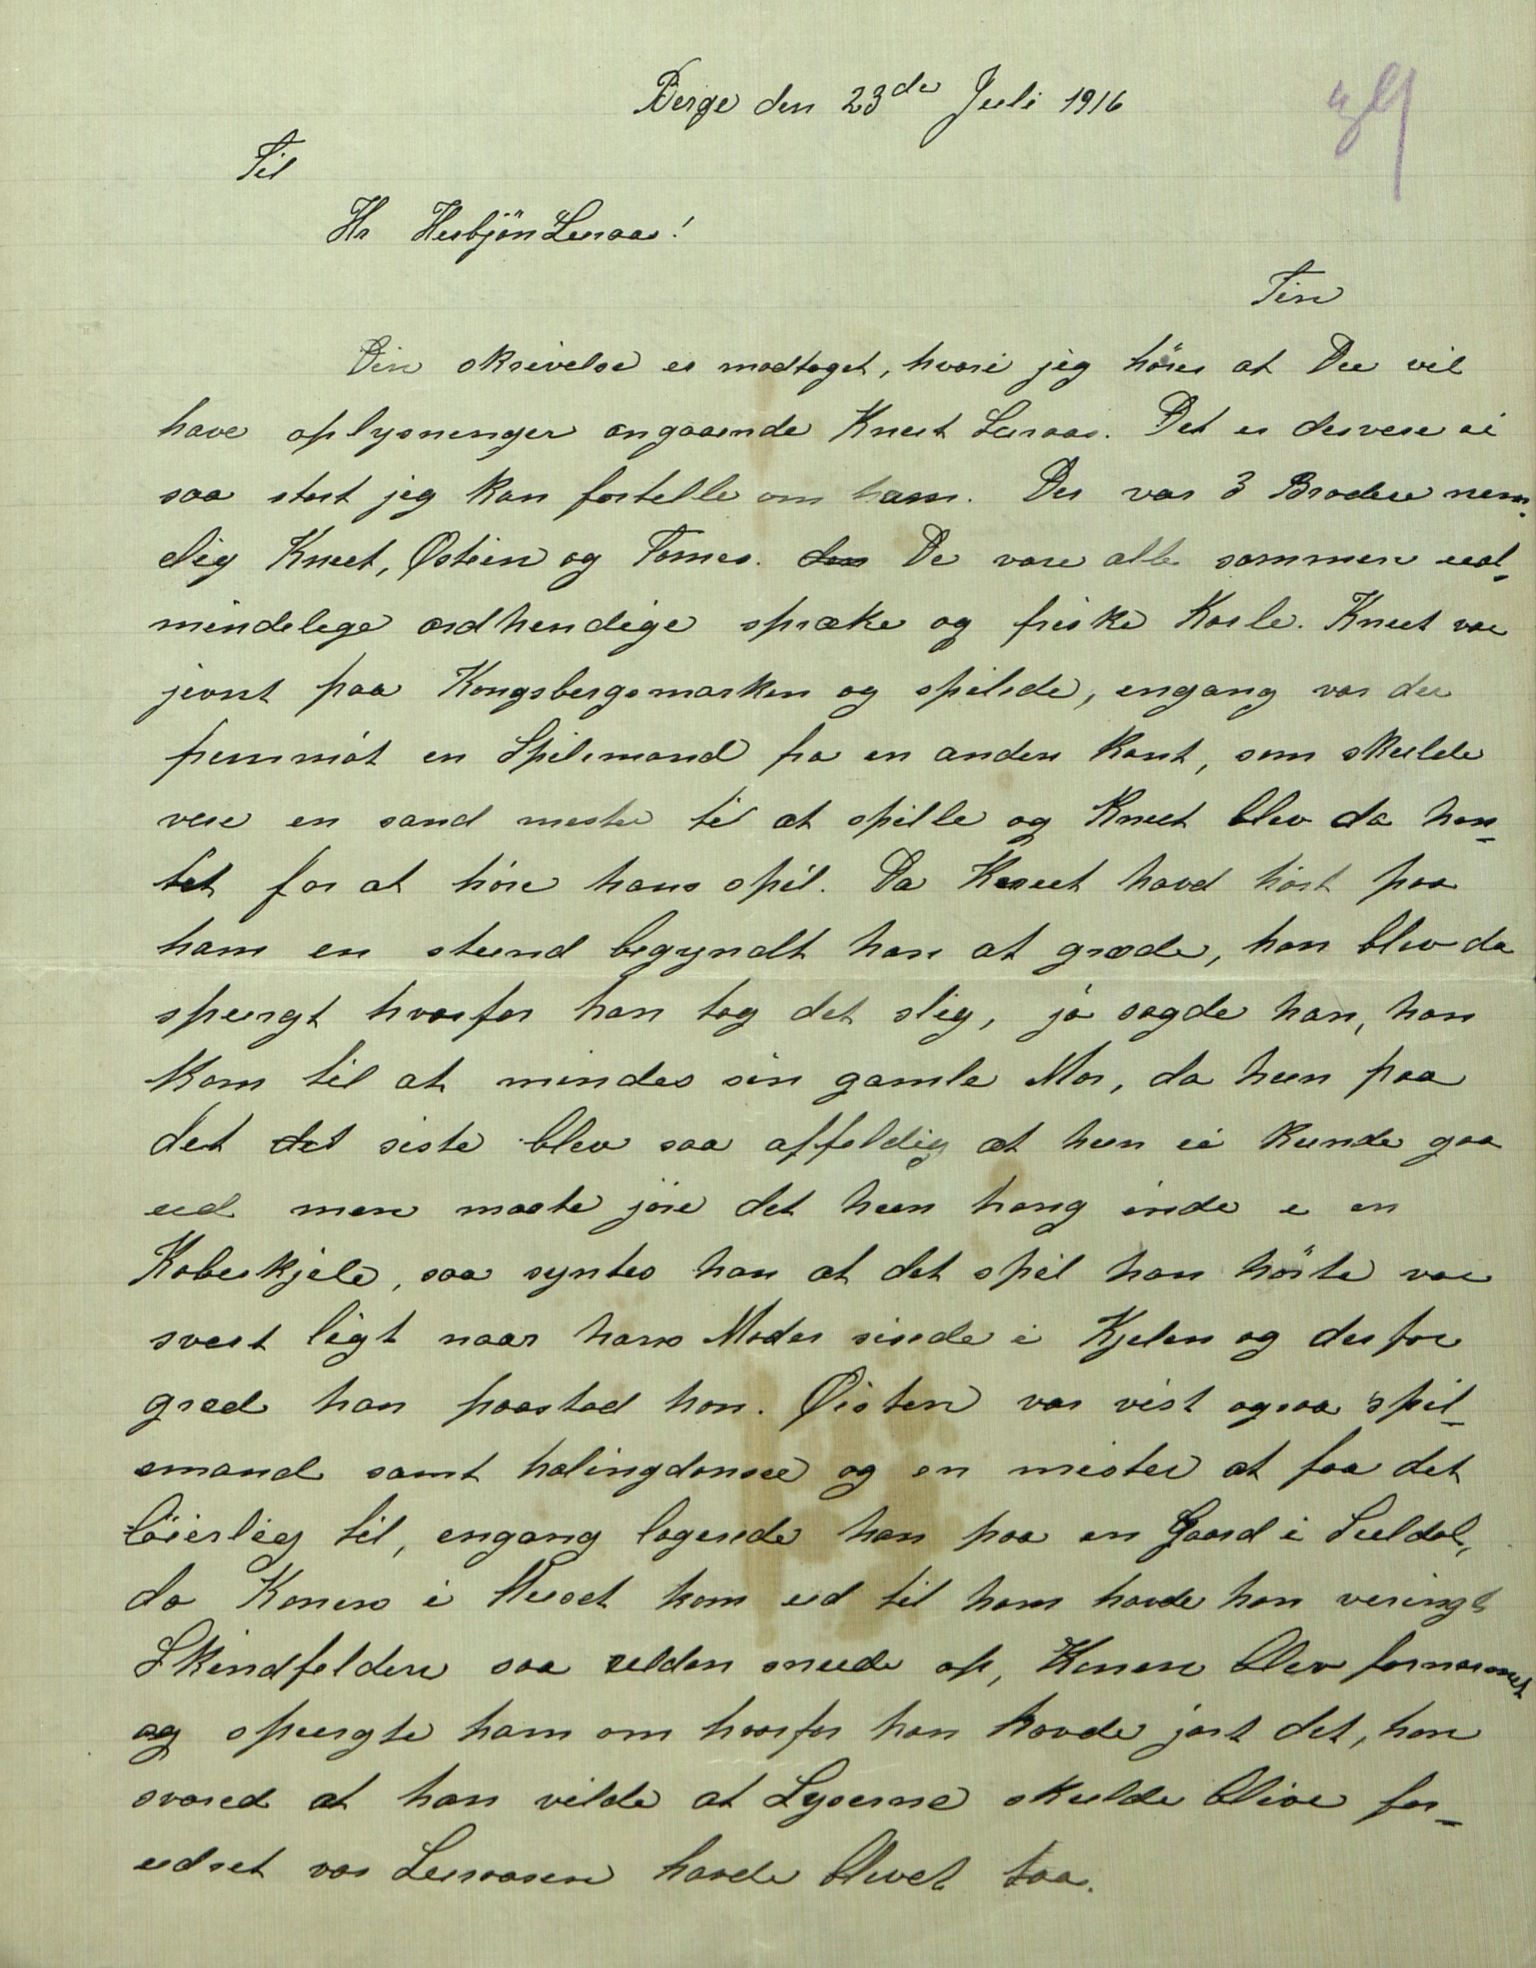 Berge den 23de Juli 1916
Til
Hr Herbjön Luraas!
Tin
Din skrivelse er modtaget, hvori jeg hörer at Du vil
have oplysninger angaaende Knut Luraas. Det er desvere ei
saa stort jeg kan fortelle om ham. Der var 3 Brødre nem-
lig Knut, Østein og Tomes. De vare alle sammen ual-
mindelige ordhendige spræke og friske Karle. Knut var
jevnt paa Kongsbergsmarken og spilede, engang var der
fremmöt en Spilemand fra en anden Kant, som skulde
vere en sand mester til at spille og Knut blev da hen-
tet for at höre hans spil. Da Knut havd hört paa
ham en stund begyndt han at græde, han blev da
spurgt hvorfor han tog det slig, jó sagde han, han
kom til at mindes sin gamle Mor, da hun paa
det det siste blev saa affeldig at hun ei kunde gaa
ud men maate jöre det hun trang inde i en
Koberkjele, saa syntes han at det spil han hörte var
svert ligt naar hans Moder sinde i Kjelen og derfor
græd han paastod han. Øisten var vist ogsaa spil-
emand samt halingdanser og en mester at faa det
löierlig til, engang logerede han paa en Gaard i Luldal,
da Konen i Huset kom ud til ham havde han vrengt
Skindfelden saa ulden snude op, Konen blev fornermet
og spurgte ham om hvorfor han havde jort det, han
svared at han vilde at Lyserne skulde blive for-
udret var Luraasen havde blivet taa.